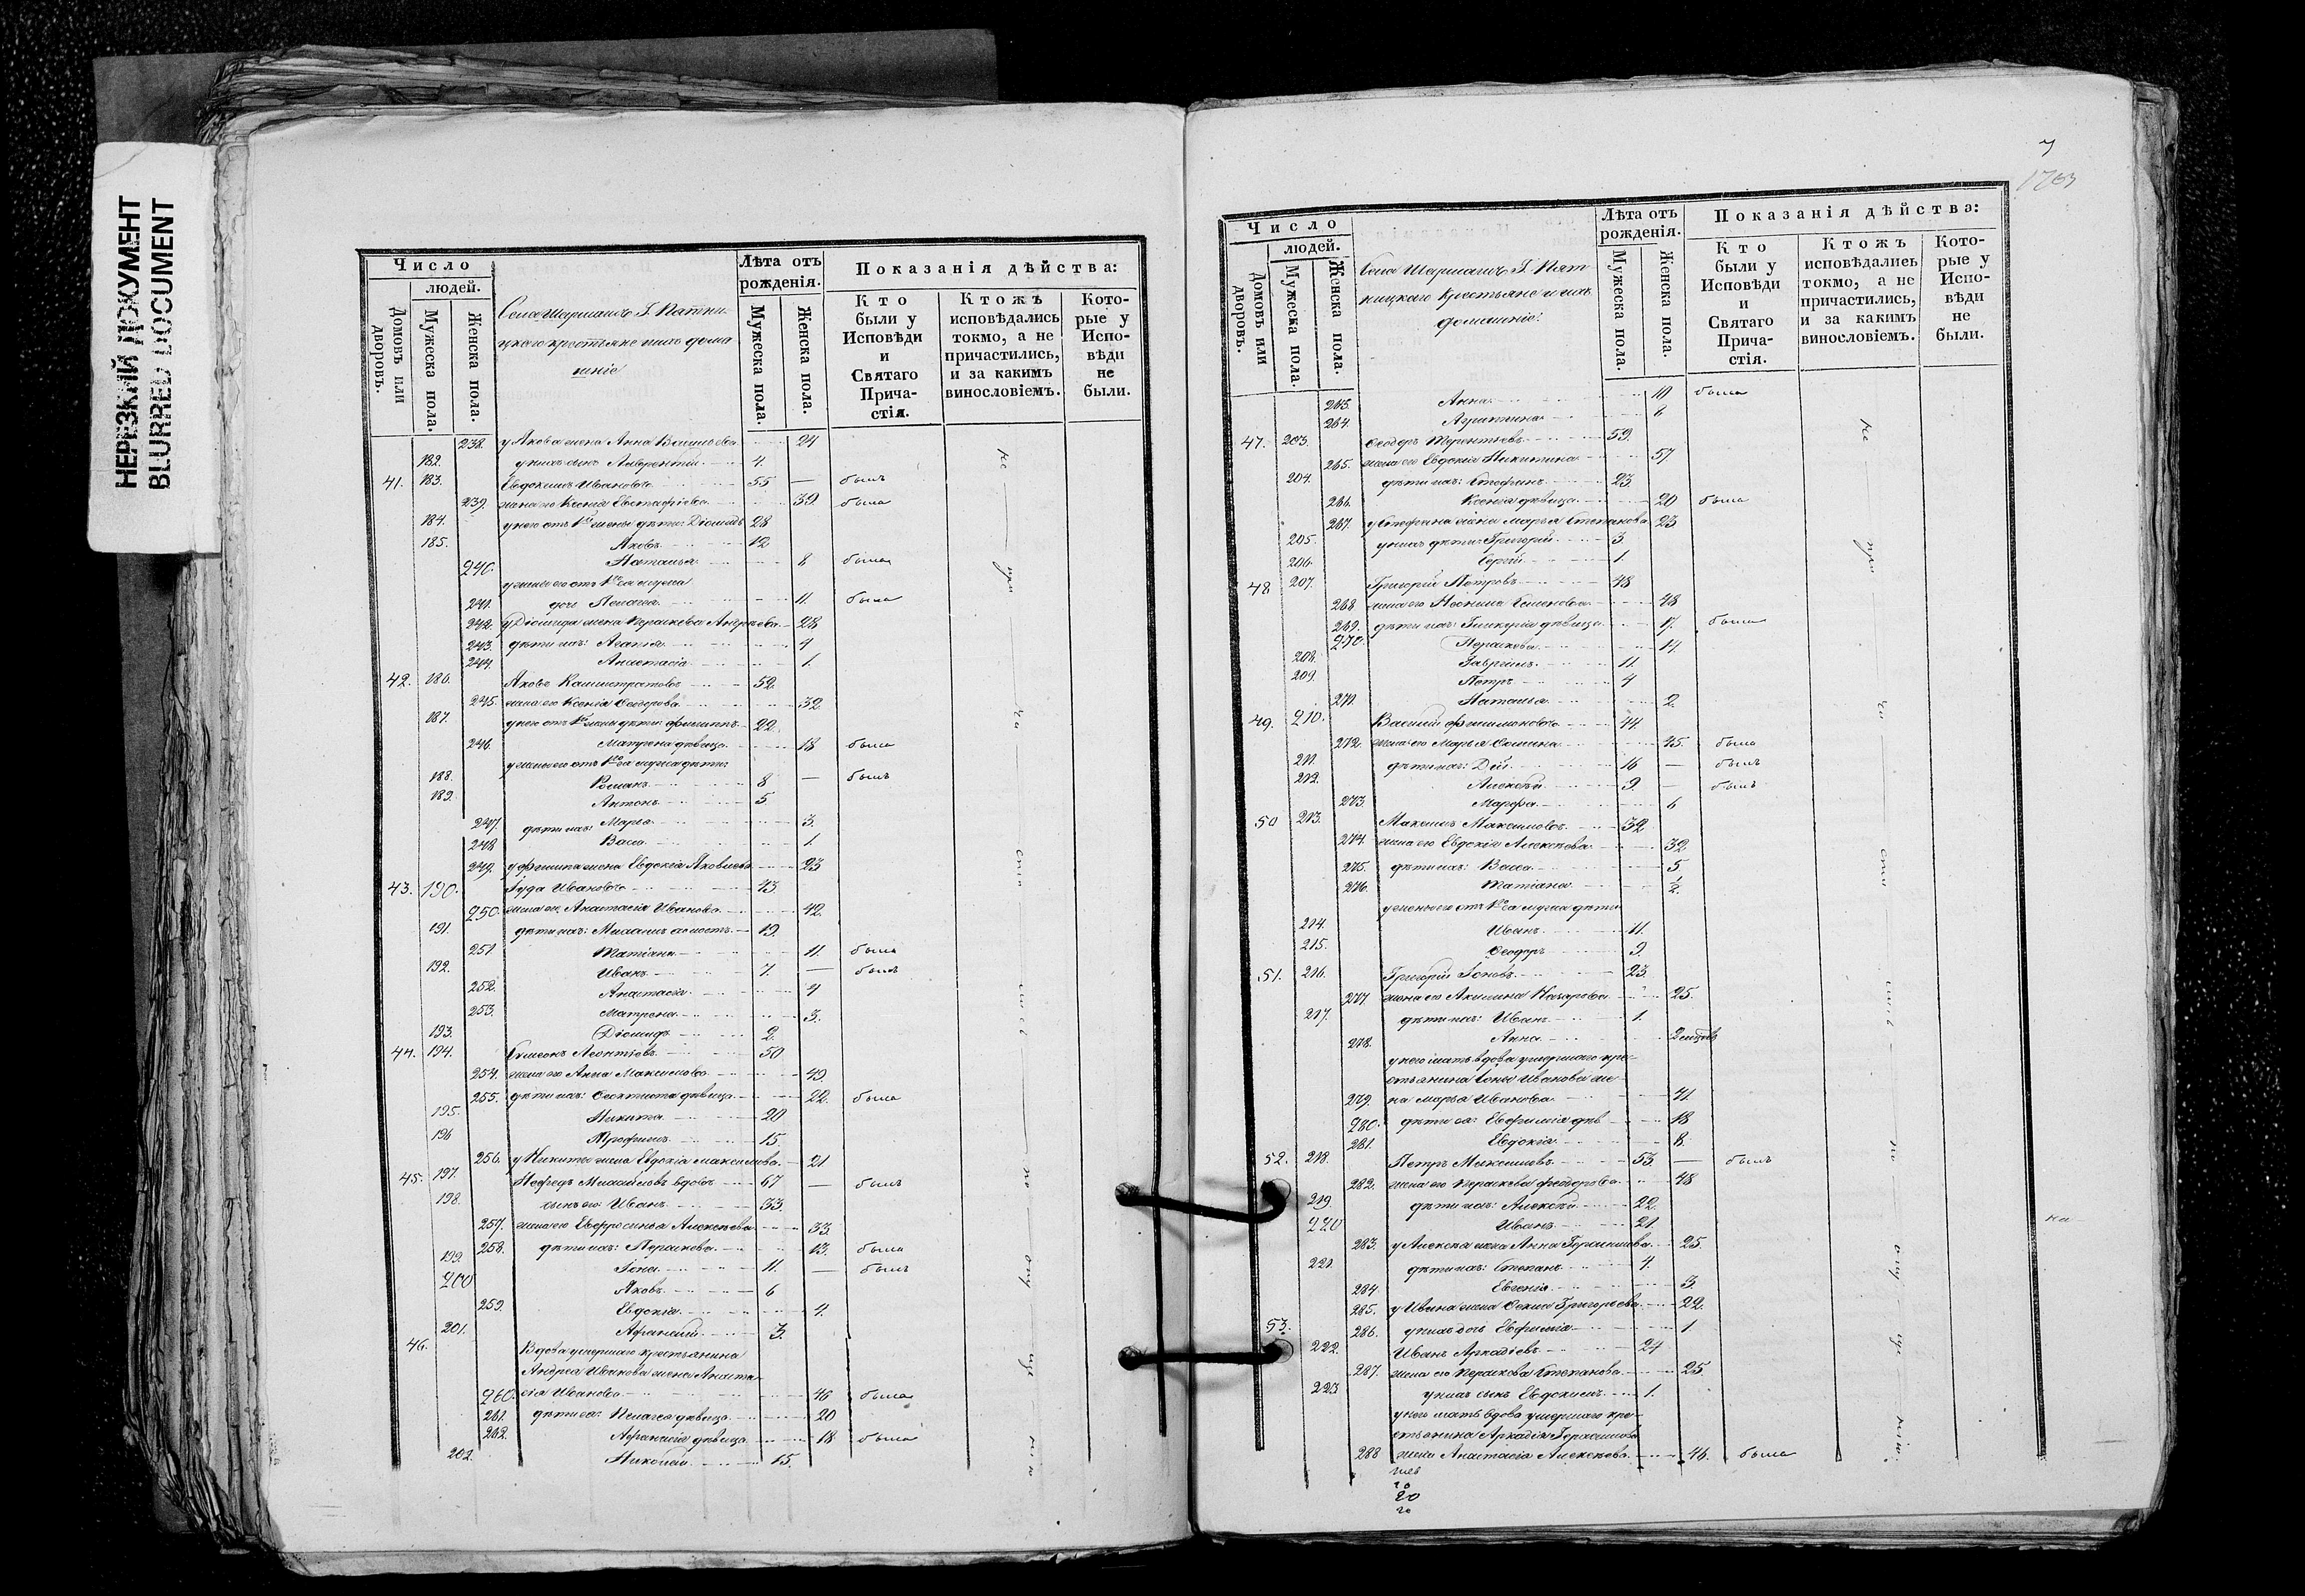 НЕРЕЗКИЙ ДОКУМЕНТ
BLURRED DOCUMENT
Число
людей.
Домовъ или дворовъ.
Мужеска пола.
Женска пола.
Лѣта отъ рожденія.
Мужеска пола.
Женска пола.
Показанія дѣйства:
Кто были у Исповѣди и Святаго Прича-стія.
Ктожъ исповѣдались токмо, а не причастились, и за какимъ винословіемъ.
Кото-рые у Испо-вѣди не были.
238. у Якова жена Анна 24
182. у нихъ сынъ 4.
41. 183. Евдокимъ Ивановъ 55 — былъ
239. жена его Ксенія Евстафіева 39. была
184. у него отъ 1й жены дѣти: Діомидъ 28
185. Яковъ 12
240. Наталья 8 была
у жены его отъ 1го мужа
241. дочь Пелагея 11. была
242. у Діомида жена Параскева Андреева 28
243. дѣти ихъ: 4
244. Анастасія 1.
42. 186. Яковъ Каллистратовъ 52.
245. жена его Ксенія Ѳеодорова 32
187. у него отъ 1й жены дѣти: Филиппъ 22.
246. Матрена дѣвица 18 была
у жены его отъ 1го мужа дѣти:
188. Романъ 8 — былъ
189. Антонъ 5
247. дѣти ихъ: Марья 3.
248 Васса 1.
249. у Филиппа жена Евдокія Яковлева 23
43. 190. Іуда Ивановъ 43
250. жена его Анастасія Иванова 42.
191. дѣти ихъ: Михаилъ холостъ 19.
251. Татіана 11. была
192. Иванъ 7. — былъ
252. Анастасія 4
253. Матрена 3.
193. Діомидъ 2.
44. 194. Симеонъ Леонтьевъ 50
254. жена его Анна Максимова 49.
255. дѣти ихъ: Ѳеоктиста дѣвица 22. была
195. Никита 20
196 Трофимъ 15.
256. у Никиты жена Евдокія Максимова 21
45. 197. Михайловъ вдовъ 67 — былъ
198. сынъ его Иванъ 33.
257. жена его Евфросинья Алексѣева 33.
258. дѣти ихъ: Параскева 13. была
199. Іона 11. — былъ
200 Яковъ 6
259. Евдокія 4.
201. Афанасій 3.
46. Вдова умершаго крестьянина
Андрея Иванова жена Анаста-
260. сія Иванова 46 была
261. дѣти ея: Пелагея дѣвица 20
262. Афанасія дѣвица 18 была
202. Николай 15.
7
1763
Число
людей.
Домовъ или дворовъ.
Мужеска пола.
Женска пола.
ницкаго крестьяне и ихъ
домашніе:
Лѣта отъ рожденія.
Мужеска пола.
Женска пола.
Показанія дѣйства:
Кто были у Исповѣди и Святаго Прича-стія.
Ктожъ исповѣдались токмо, а не причастились, и за какимъ винословіемъ.
Кото-рые у Испо-вѣди не были.
263. Анна 10 была
264. 6
47. 203. Ѳеодоръ Терентьевъ 59.
265. жена его Евдокія Никитина 57
204. дѣти ихъ: Стефанъ 23.
266. Ксенія дѣвица 20 была
267. у Стефана жена Марья Степанова 23
205. у нихъ дѣти: Григорій 3
206. Сергій 1.
48 207. Григорій Петровъ 48
268. жена его Неонила Семенова 48
269. дѣти ихъ: Гликерія дѣвица 17. была
270. Параскева 14.
208. Гавріилъ 11.
209. Петръ 4
271. Наталья 2.
49. 210. Василій Филимоновъ 44.
272. жена его Марья Ѳомина 45. была
211. дѣти ихъ: Дій 16 — былъ
212. Алексѣй 9. — былъ
273. Марѳа 6
50 213. Максимъ Максимовъ 32
274. жена его Евдокія Алексѣева 32
275. дѣти ихъ: Васса 5
276. Татіана ½
у жены его отъ 1го мужа дѣти
214. Иванъ 11.
215. Ѳеодоръ 9.
51. 216. Григорій Іоновъ 23.
277. жена его Акилина Назарова 25.
217. дѣти ихъ: Иванъ 1.
278. Анна
у него мать вдова умершаго кре-
стьянина Іоны Иванова же-
279. на Марья Иванова 41.
280. дѣти ея: Евфимія дѣв 18
281. Евдокія 8.
52. 218. Петръ Максимовъ 53. — былъ
282. жена его Параскева Феодорова 48
219. дѣти ихъ: Алексѣй 22.
220 Иванъ 21.
283. у Алексѣя жена Анна Герасимова 25.
221. дѣти ихъ: Степанъ 4.
284 Евгенія 3
285. у Ивана жена Ѳекла Григорьева 22.
286. у нихъ дочь Евфимія 1.
53. 222. Иванъ Аркадіевъ 24
287. жена его Параскева Степанова 25.
223 у нихъ сынъ Евдокимъ 1.
у него мать вдова умершаго кре-
стьянина Аркадія Герасимова
288 жена Анастасія Алексѣева 46. была